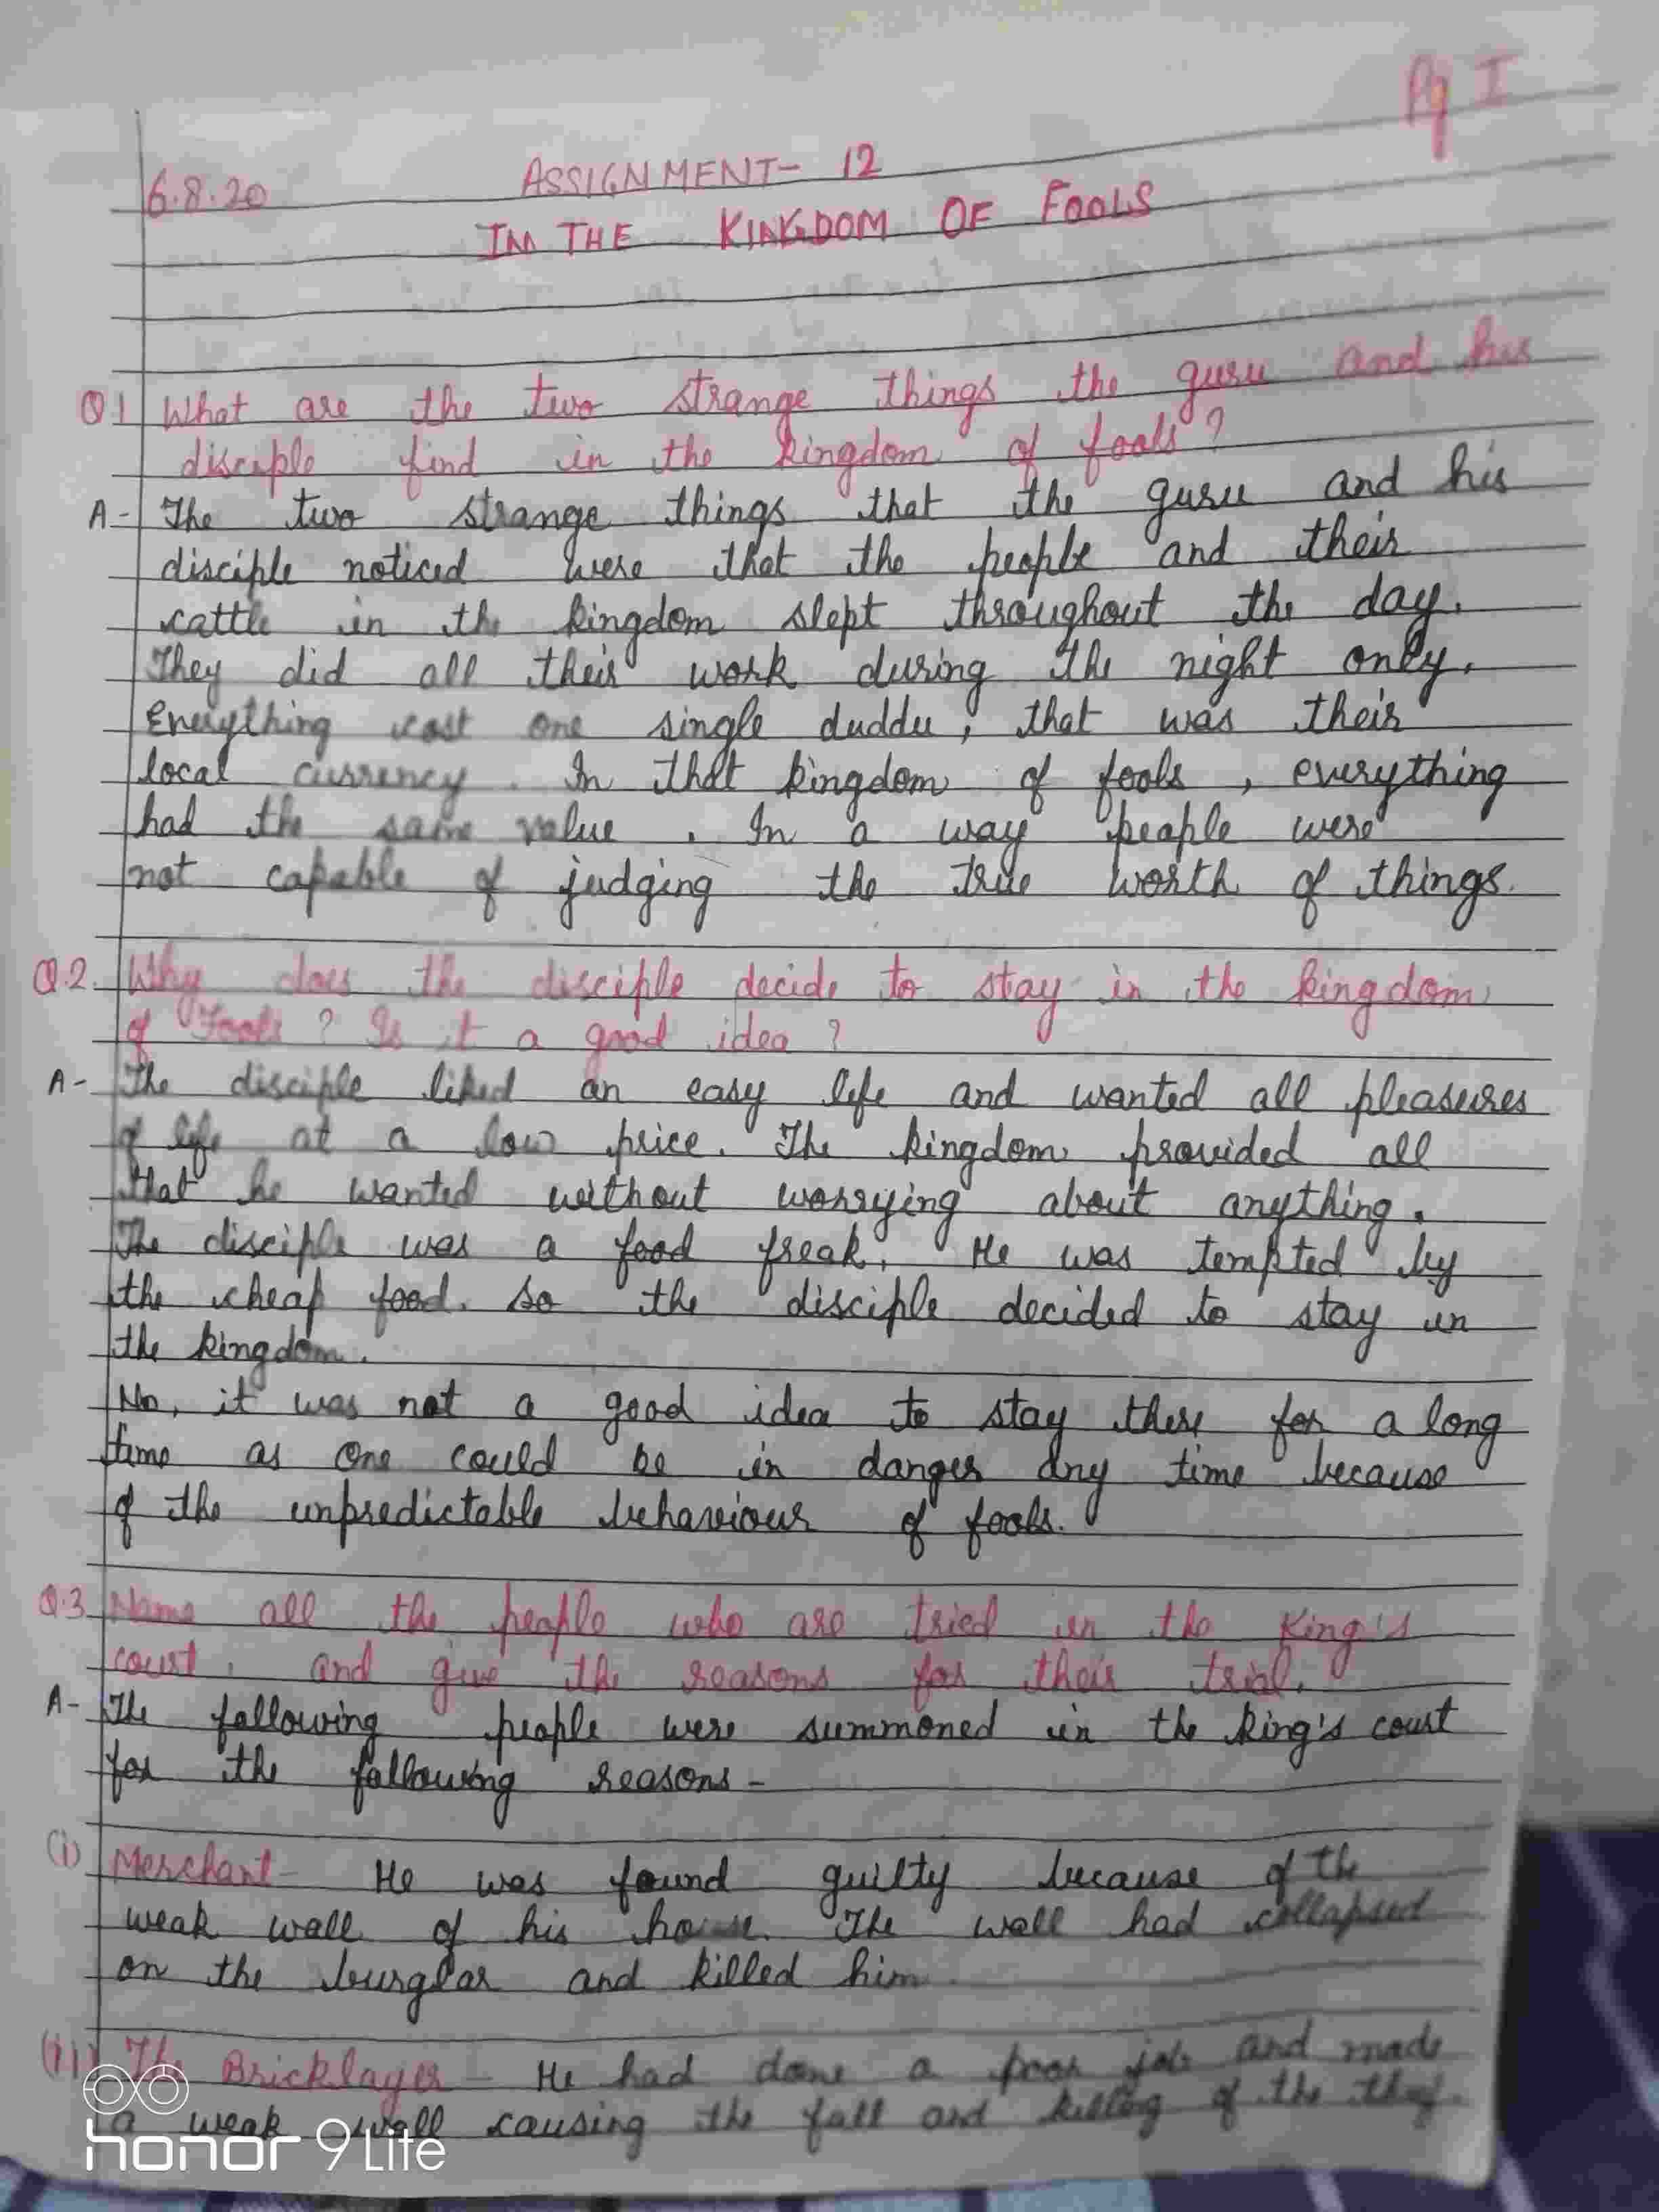 Pg I
6.8.20
ASSIGNMENT- 12
IN THE KINGDOM OF FOOLS
Q1 What are the two strange things the guru and his
disciple find in the kingdom of fools?
A- The two strange things that the guru and his
disciple noticed were that the people and their
cattle in the kingdom slept throughout the day.
They did all their work during the night only.
Everything cost one single duddu, that was their
local currency. In that kingdom of fools, everything
had the same value. In a way people were
not capable of judging the true worth of things.
Q.2. Why does the disciple decide to stay in the kingdom
of Fools? Is it a good idea?
A- The disciple liked an easy life and wanted all pleasures
of life at a low price. The kingdom provided all
that he wanted without worrying about anything.
The disciple was a food freak. He was tempted by
the cheap food. So the disciple decided to stay in
the kingdom.
No, it was not a good idea to stay there for a long
time as one could be in danger any time because
of the unpredictable behaviour of fools.
Q.3 Name all the people who are tried in the King's
court, and give the reasons for their trial.
A- The following people were summoned in the king's court
for the following reasons-
(i) Merchant- He was found guilty because of the
weak wall of his house. The wall had collapsed
on the burglar and killed him.
(ii) The Bricklayer- He had done a poor job and made
a weak wall causing the fall and killing of the thief.
honor 9 Lite